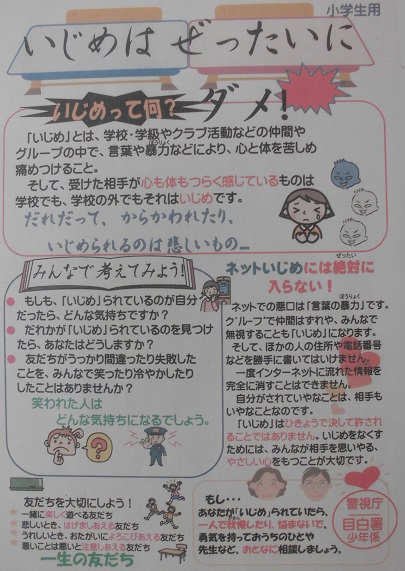 小学生用
いじめは ぜったいに
ダメ!
いじめって何?
「いじめ」とは、学校・学級やクラブ活動などの仲間や
グループの中で、言葉や暴力などにより、心と体を苦しめ
痛めつけること。
そして、受けた相手が心も体もつらく感じているものは
学校でも、学校の外でもそれはいじめです。
だれだって、からかわれたり、
いじめられるのは悲しいもの…
みんなで考えてみよう!
● もしも、「いじめ」られているのが自分
だったら、どんな気持ちですか?
● だれかが「いじめ」られているのを見つけ
たら、あなたはどうしますか?
● 友だちがうっかり間違ったり失敗した
ことを、みんなで笑ったり冷やかしたり
したことはありませんか?
笑われた人は
どんな気持ちになるでしょう。
?
?
ネットいじめには絶対に
入らない!
ネットでの悪口は「言葉の暴力」です。
グループで仲間はずれや、みんなで
無視することも「いじめ」になります。
そして、ほかの人の住所や電話番号
などを勝手に書いてはいけません。
一度インターネットに流れた情報を
完全に消すことはできません。
自分がされていやなことは、相手も
いやなことなのです。
「いじめ」はひきょうで決して許され
ることではありません。いじめをなくす
ためには、みんなが相手を思いやる、
やさしい心をもつことが大切です。
友だちを大切にしよう!
一緒に楽しく遊べる友だち
悲しいとき、はげましあえる友だち
うれしいとき、おたがいによろこびあえる友だち
悪いことは悪いと注意しあえる友だち
一生の友だち
もし・・・
あなたが「いじめ」られていたら、
一人で我慢したり、悩まないで、
勇気を持っておうちのひとや
先生など、おとなに相談しましょう。
警視庁
目白署
少年係